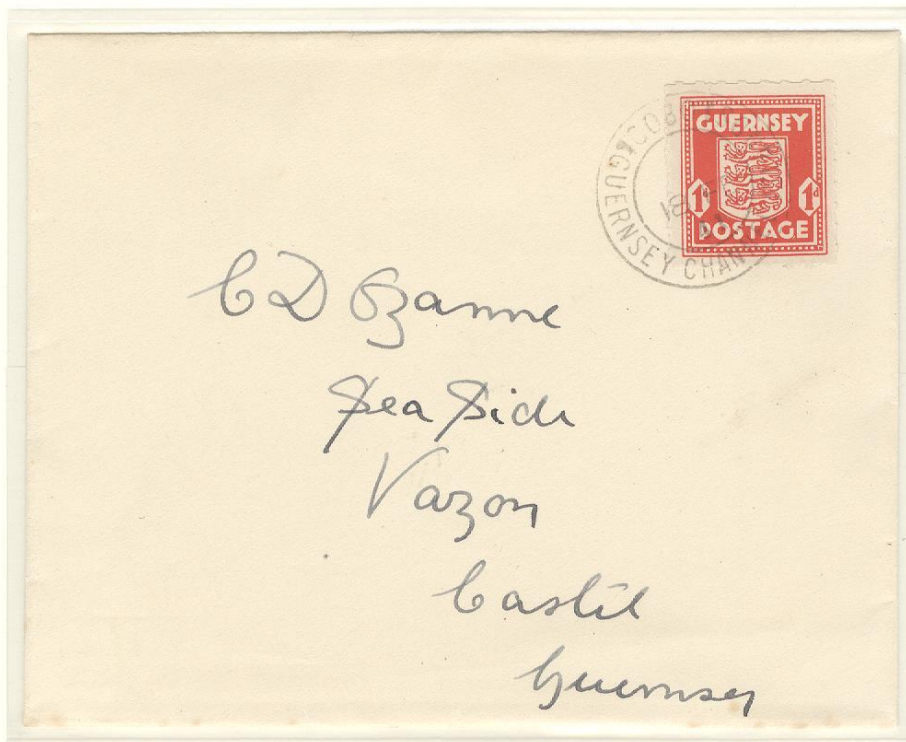 GUERNSEY
1 1d
POSTAGE
GUERNSEY CHAN
18
C D Ozanne
Sea Side
Vazon
Castil
Guernsey